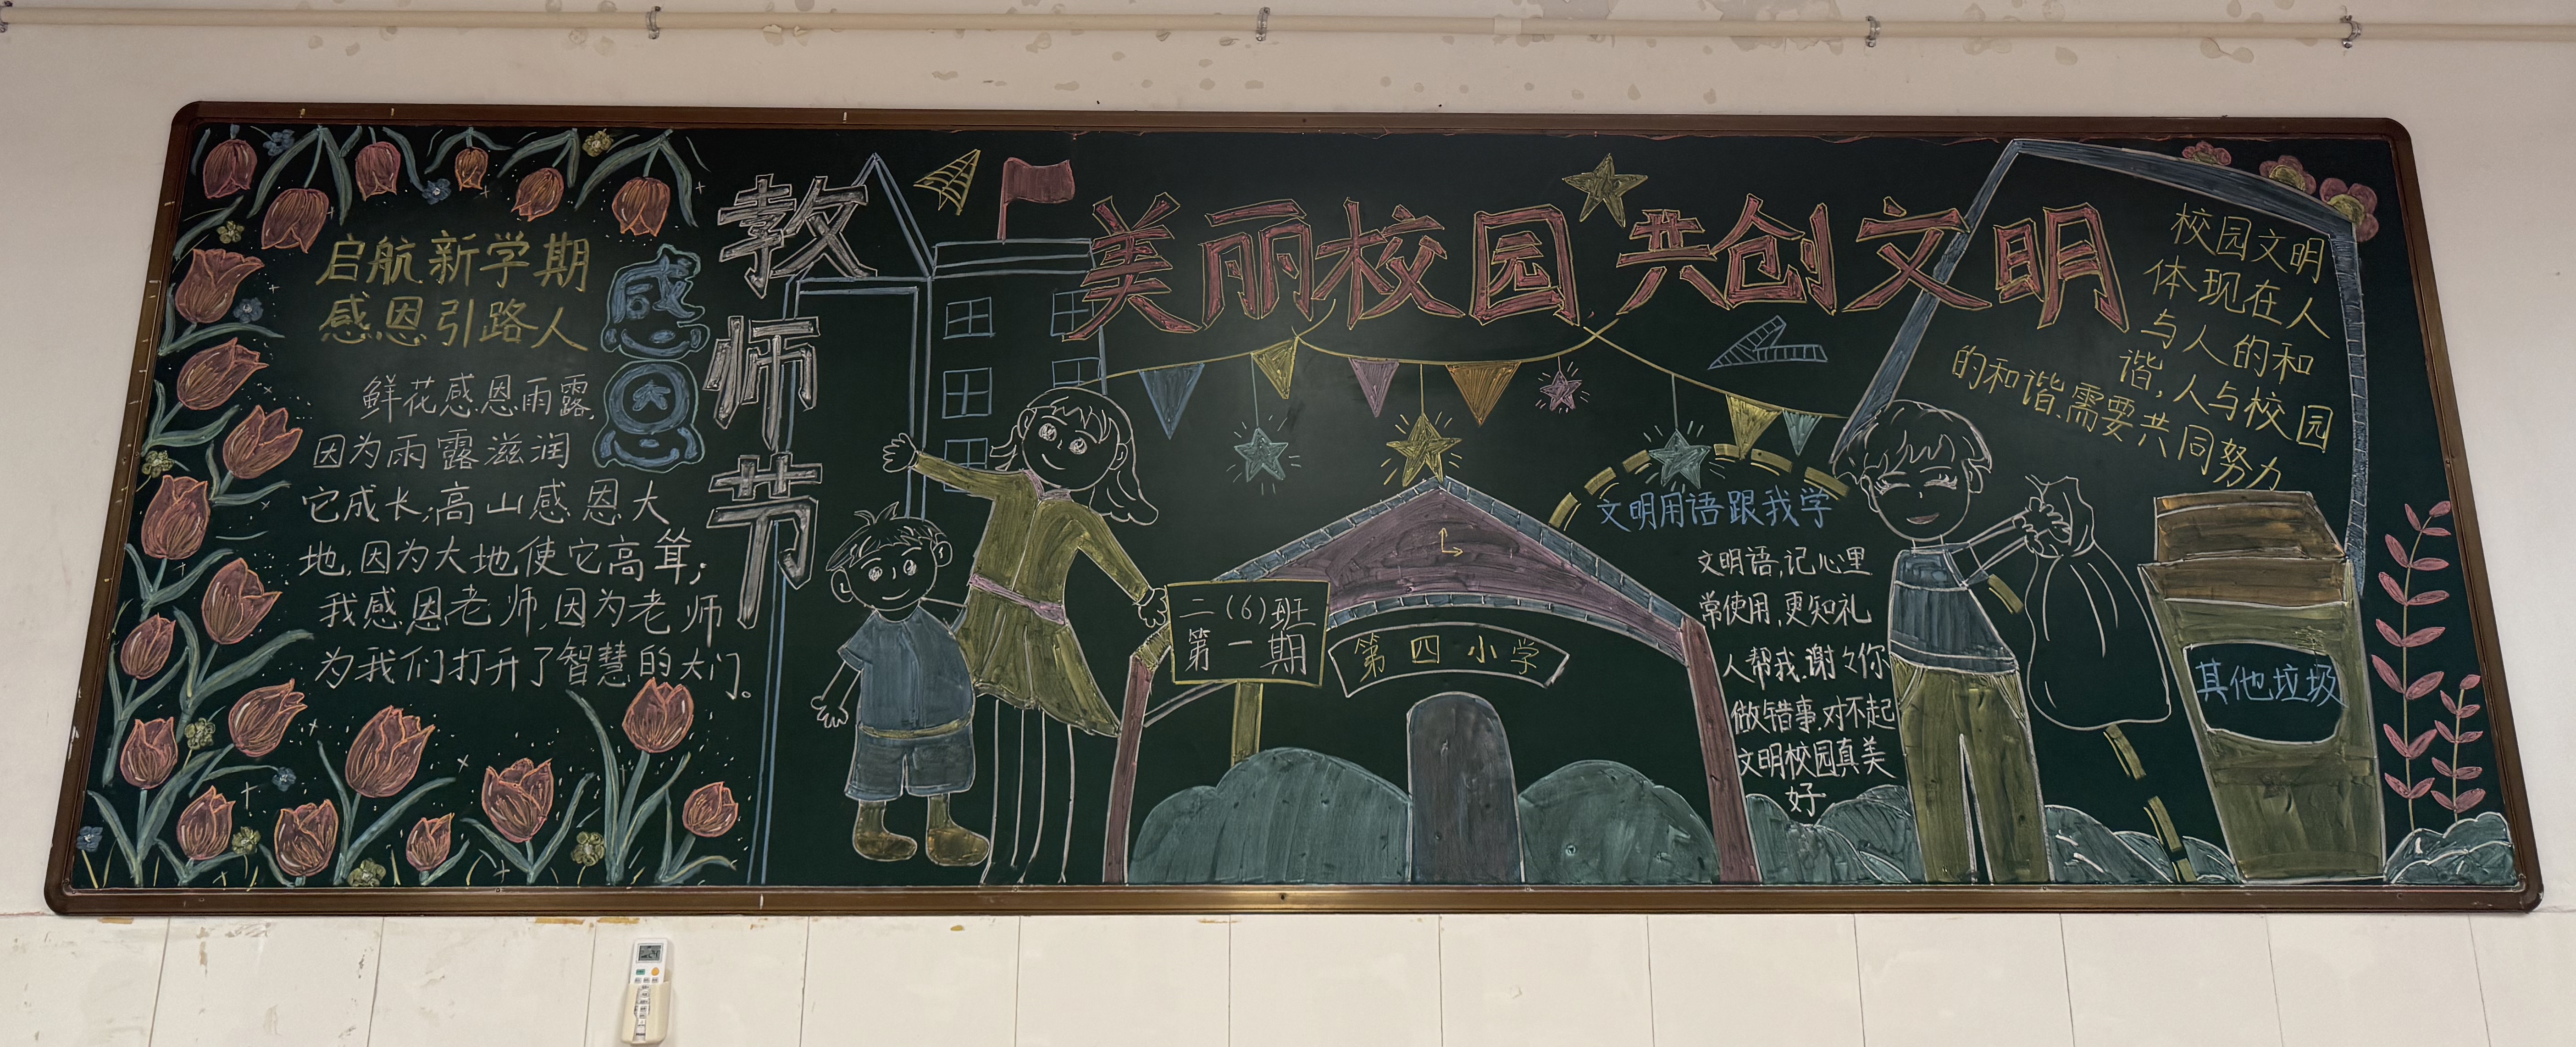 启航新学期
感恩引路人
感恩
鲜花感恩雨露,
因为雨露滋润
它成长;高山感恩大
地,因为大地使它高耸;
我感恩老师,因为老师
为我们打开了智慧的大门。
教师节
美丽校园共创文明
二(6)班
第一期
第四小学
文明用语跟我学
文明语,记心里
常使用,更知礼
人帮我,谢々你
做错事,对不起
文明校园真美
好
校园文明
体现在人
与人的和
谐,人与校园
的和谐.需要共同努力
其他垃圾